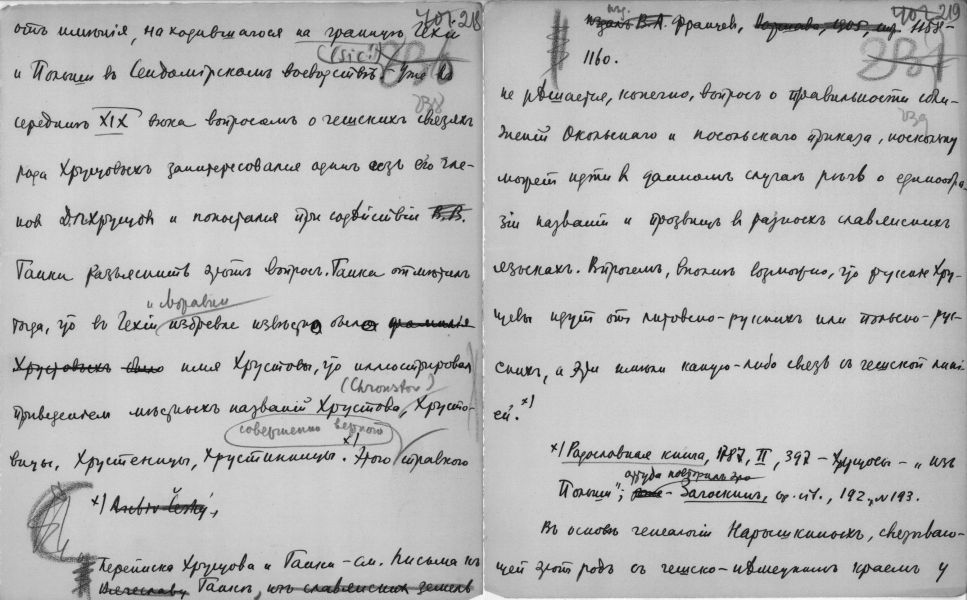 401. 218
отъ имѣнія, находившагося на границѣ Чехіи
(sic!)
и Польши въ Сендомірскомъ воеводствѣ. Уже въ
серединѣ XIX вѣка вопросомъ о чешскихъ связяхъ
рода Хрущовыхъ заинтересовался одинъ изъ его чле-
новъ Хрущовъ и попытался при содѣйствіи В.В.
Ганки разъяснить этотъ вопросъ. Ганка отмѣтилъ
и Моравіи
тогда, что въ Чехіи издревле извѣстно было фамилія
Хрустовыхъ было имя Хрустовы, что иллюстрировал
(Chroustov)
приведеніем мѣстныхъ названій Хрустова, Хрусто-
совершенно вѣрно
вицы, Хрустеницы, Хрустинницы. x) Этого справкою
x) Archiv Český,
Переписка Хрущова и Ганки – см. Письма къ
Вячеславу Ганкѣ, изъ славянскихъ земель
219
изд. В.А. Францев, Варшава, 1905, стр. 1158-
1160.
не рѣшается, конечно, вопросъ о правильности сбли-
женій Окольнаго и посольскаго приказа, поскольку
можетъ идти въ данномъ случаѣ рѣчь о единообра-
зіи названій и прозвищъ в разныхъ славянскихъ
языкахъ. Впрочемъ, вполнѣ возможно, что русскіе Хру-
щевы идутъ отъ литовско-русскихъ или польско-рус-
скихъ, а эти имѣли какую-либо связь съ чешской лині-
ей. x)
x) Родословная книга, 1787, II, 397 – Хрущовы – "изъ
отсюда повторилъ это
Польши"; – Загоскинъ, op. cit., 192, № 193.
Въ основѣ генеалогіи Нарышкиныхъ, связываю-
щей этотъ родъ съ чешско-нѣмецкимъ краемъ у